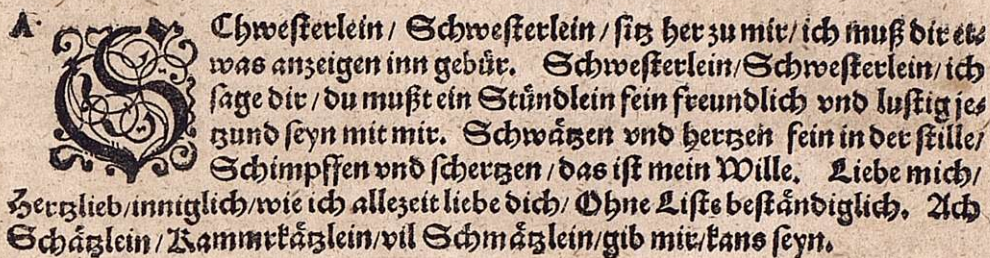 A.
SChwesterlein / Schwesterlein / sitz her zu mir / ich muß dir et⸗
was anzeigen inn gebür. Schwesterlein/Schwesterlein/ ich
sage dir / du mußt ein Stündlein fein freundlich vnd lustig je⸗
tzund seyn mit mir. Schwätzen vnd hertzen fein in der stille/
Schimpffen vnd schertzen / das ist mein Wille. Liebe mich/
Hertzlieb/inniglich/wie ich allezeit liebe dich/ Ohne Liste beständiglich. Ach
Schätzlein / Kammrkätzlein/vil Schmätzlein/gib mir/kans seyn.